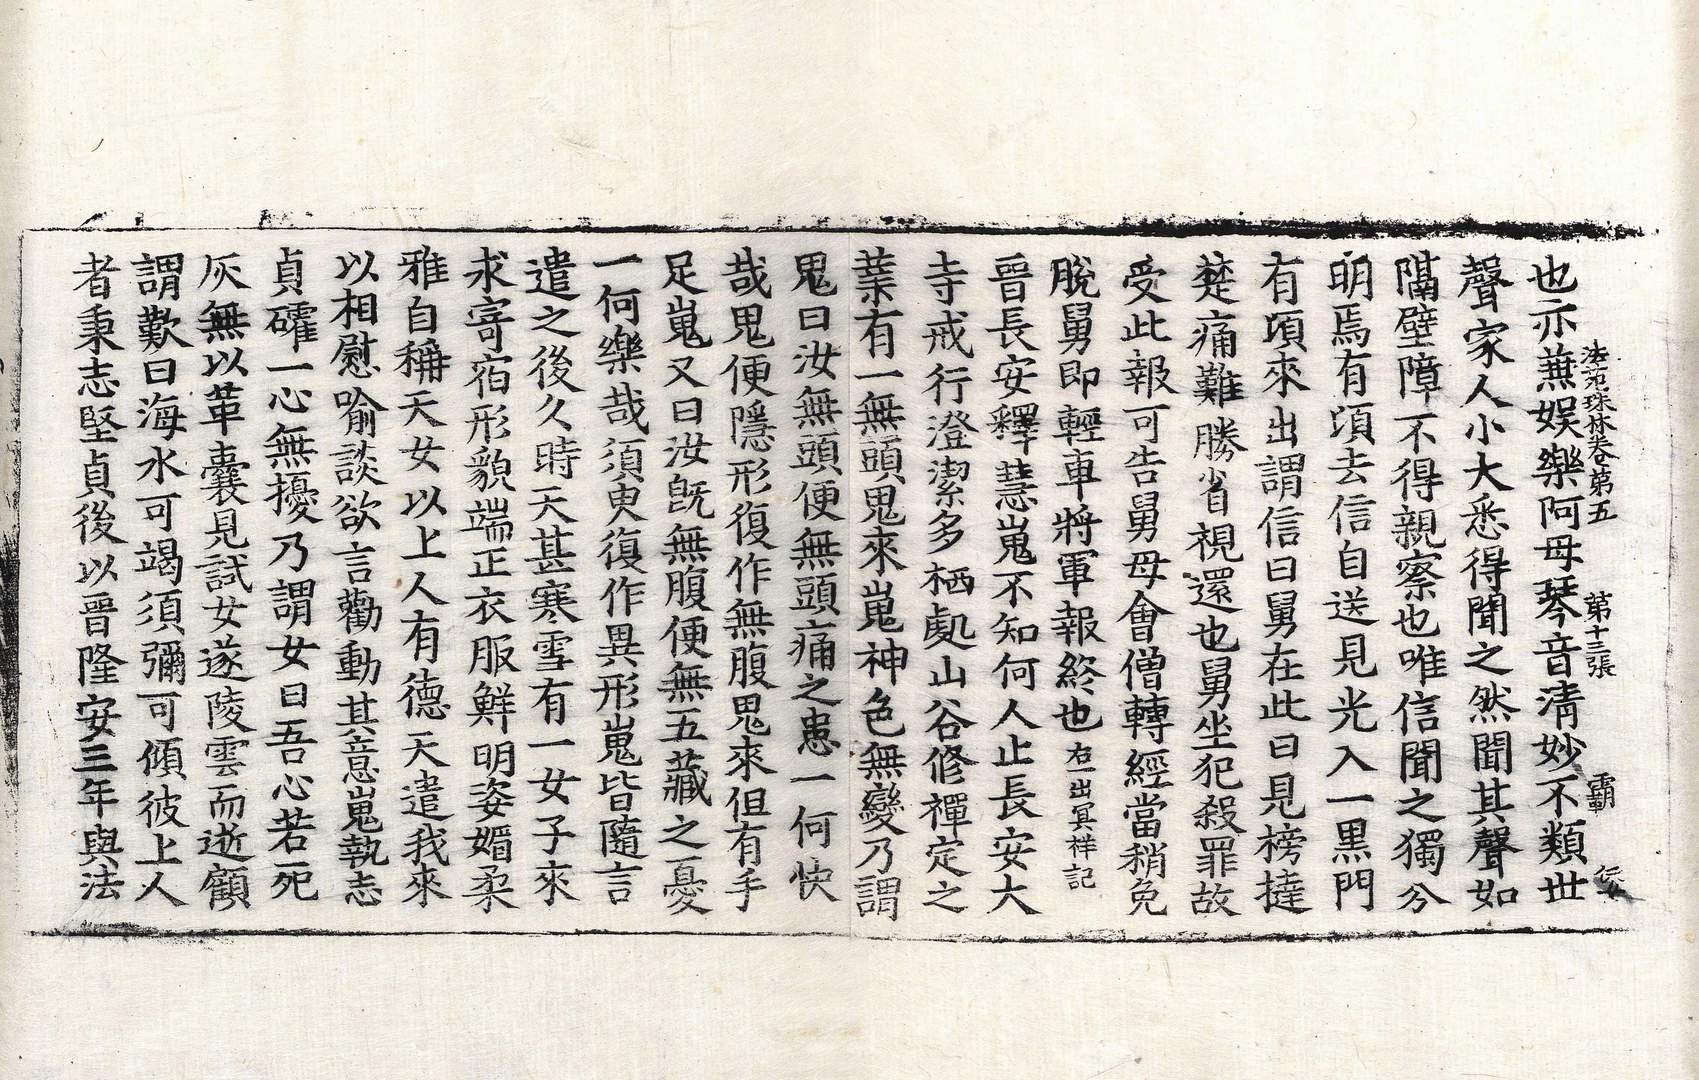 法苑珠林卷第五　第十三張　霸
也亦兼娛樂阿母琴音清妙不類世
聲家人小大悉得聞之然聞其聲如
隔壁障不得親察也唯信聞之獨分
明焉有頃去信自送見光入一黑門
有頃來出謂信曰舅在此日見榜撻
楚痛難勝省視還也舅坐犯殺罪故
受此報可告舅母會僧轉經當稍免
脫舅即輕車將軍報終也右一出冥祥記
晉長安釋慧嵬不知何人止長安大
寺戒行澄潔多栖處山谷修禪定之
業有一無頭鬼來嵬神色無變乃謂
鬼曰汝無頭便無頭痛之患一何快
哉鬼便隱形復作無腹鬼來但有手
足嵬又曰汝既無腹便無五藏之憂
一何樂哉須臾復作異形嵬皆隨言
遣之後久時天甚寒雪有一女子來
求寄宿形貌端正衣服鮮明姿媚柔
雅自稱天女以上人有德天遣我來
以相慰喻談欲言勸動其意嵬執志
貞確一心無擾乃謂女曰吾心若死
灰無以革囊見試女遂陵雲而逝顧
謂歎曰海水可竭須彌可傾彼上人
者秉志堅貞後以晉隆安三年與法